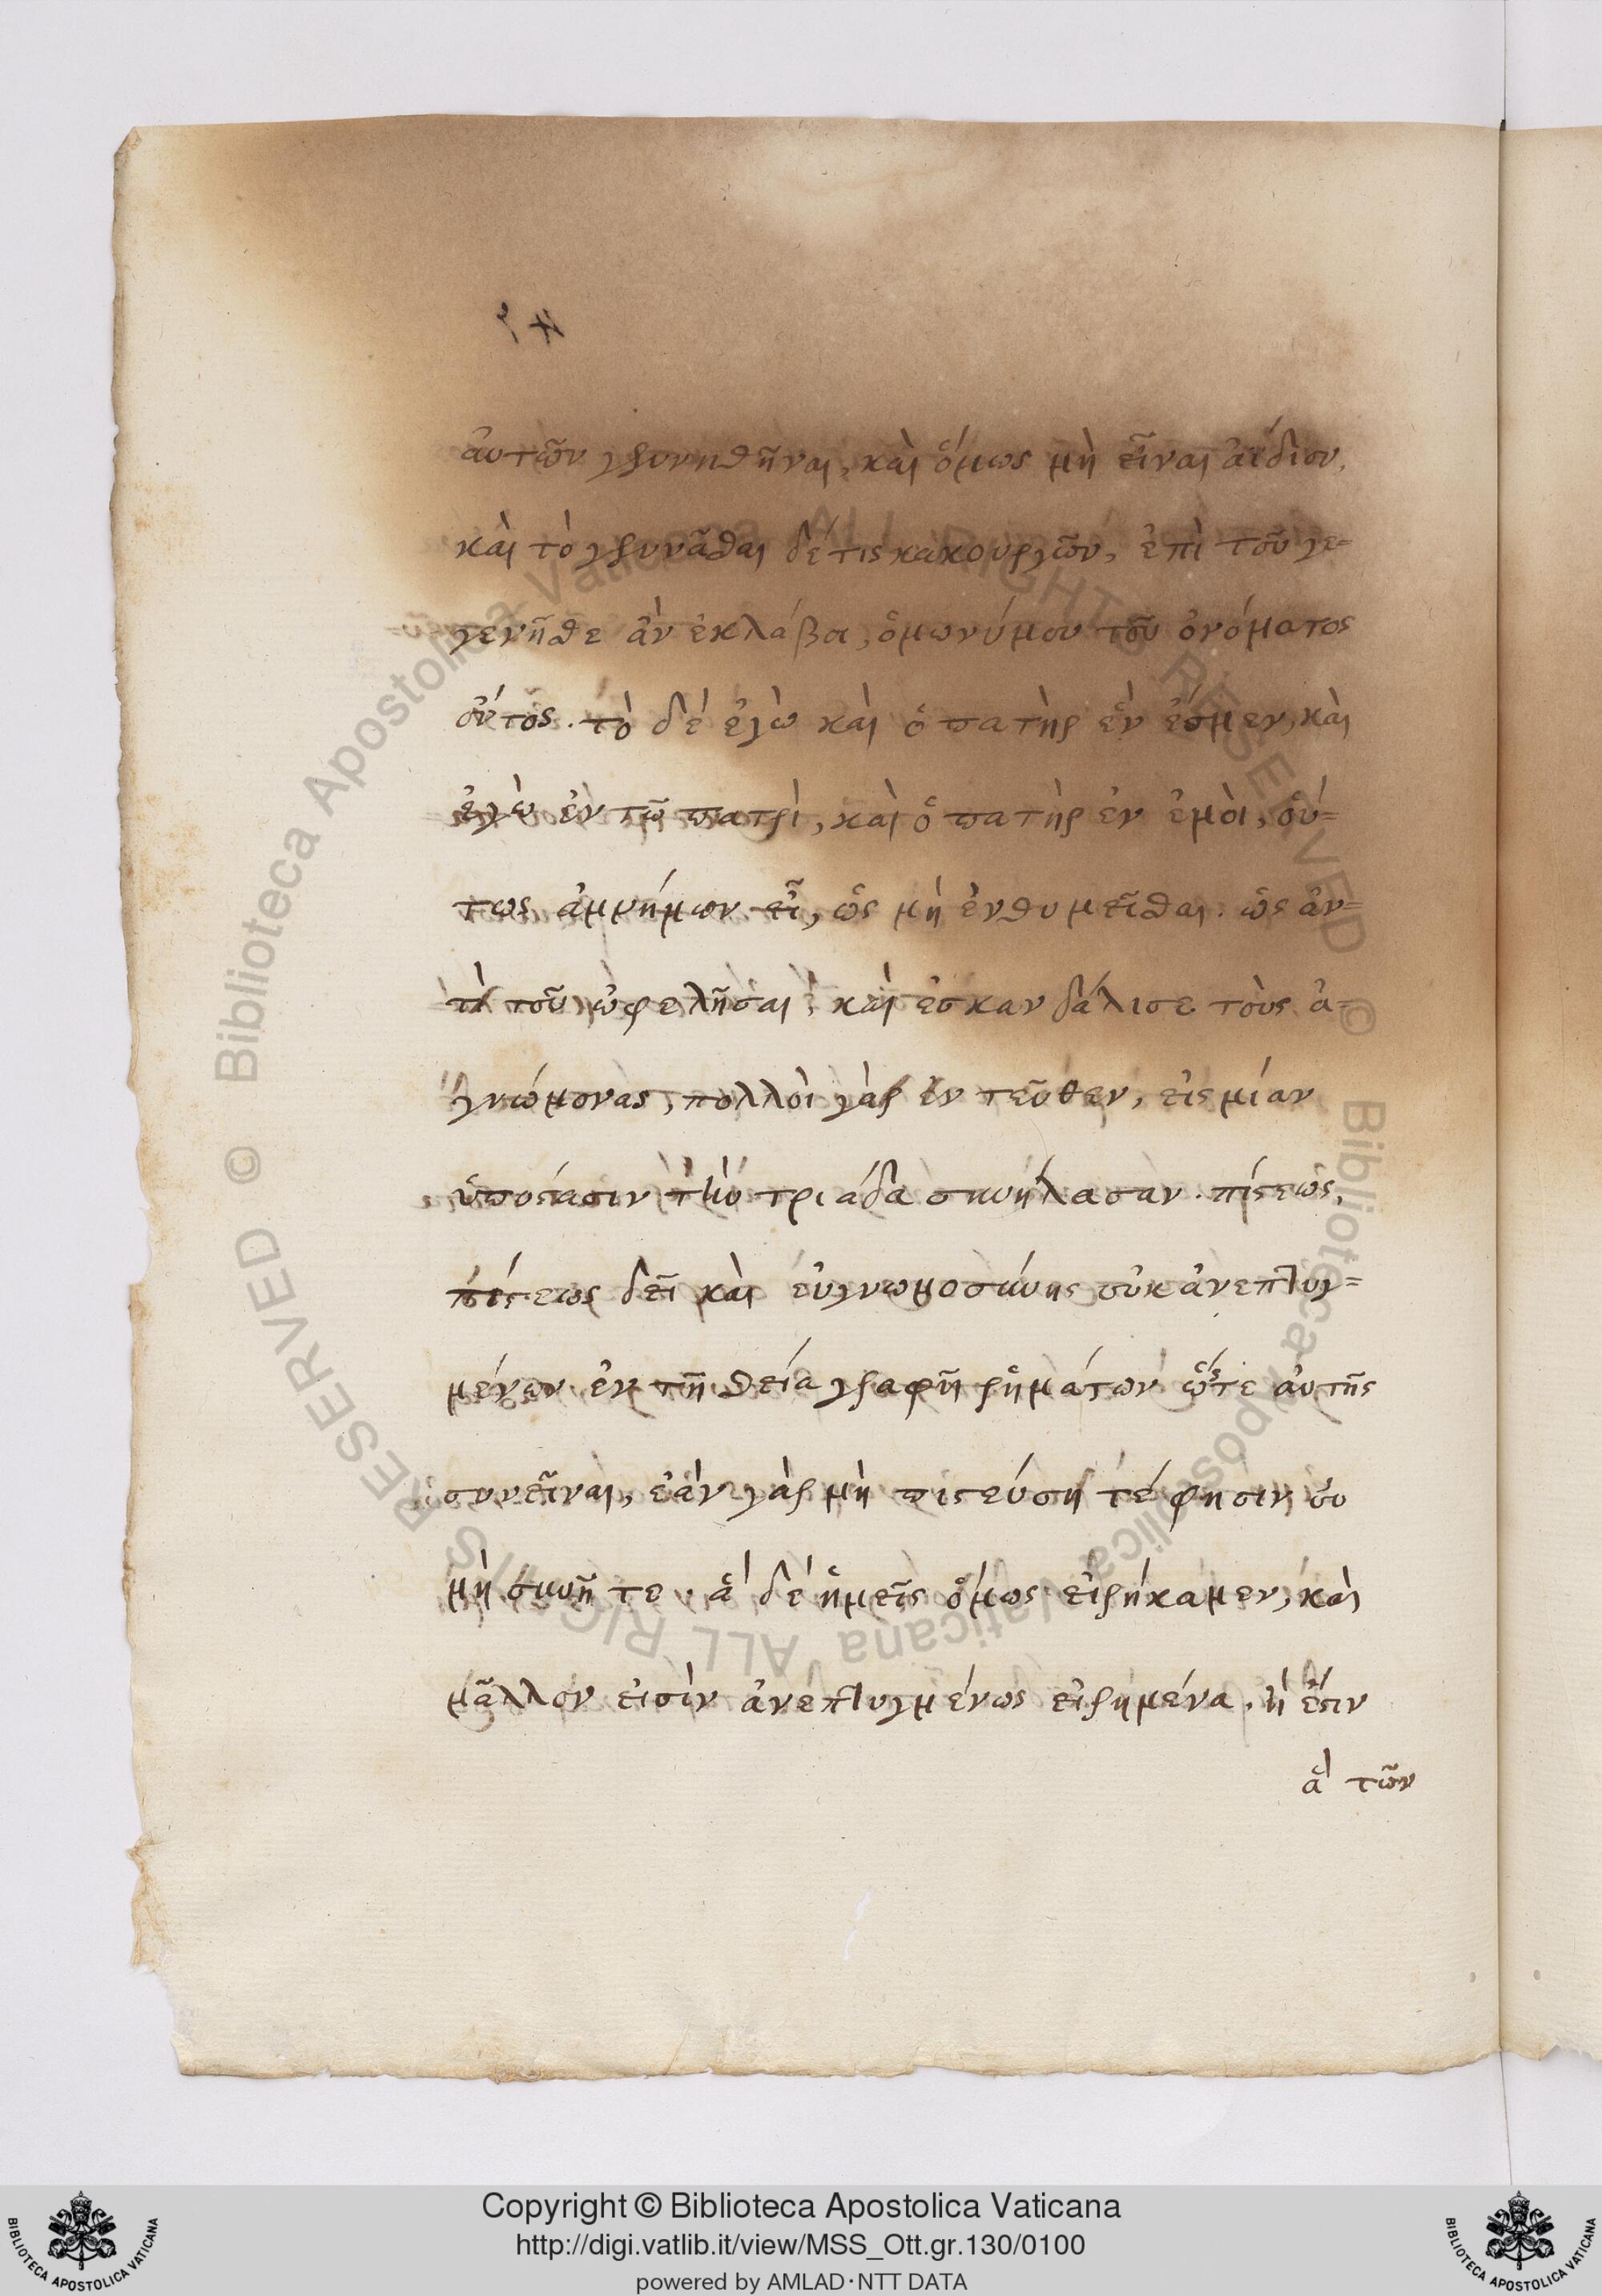 αὐτῶν γεννηθῆναι, καὶ ὅμως μὴ εἶναι ἀΐδιον,
καὶ τὸ γεννᾶσθαι δέ τις κακουργῶν, ἐπὶ τοῦ γε=
γενῆσθε ἂν ἐκλάβοι, ὁμωνύμου τοῦ ὀνόματος
ὄντος. τὸ δὲ ἐγὼ καὶ ὁ πατὴρ ἕν ἐσμεν, καὶ
ἐγὼ ἐν τῶ πατρὶ, καὶ ὁ πατὴρ ἐν ἐμὸι, οὕ=
τως ἀμνήμων εἶ, ὡς μὴ ἐνθυμεῖσθαι. ὡς ἀν=
τὶ τοῦ ὠφελῆσαι, καὶ ἐσκανδάλισε τοὺς ἀ=
γνώμονας, πολλοὶ γὰρ ἐντεῦθεν, εἰς μίαν
ὑπόστασιν τὴν τριάδα συνήλασαν. πίστεως,
πίστεως δεῖ καὶ εὐγνωμοσύνης οὐκ ἀνεπτυγ=
μένων ἐν τῆ θεία γραφῆ ῥημάτων ὥστε αὐτῆς
συνεῖναι, ἐάν γὰρ μὴ πιστεύσητέ φησιν, οὐ
μὴ συνῆτε. ἃ δὲ ἡμεῖς ὅμως εἰρήκαμεν, καὶ
μᾶλλον εἰσὶν ἀνεπτυγμένως εἰρημένα, ἤ ἐστιν
ἃ τῶν
Copyright © Biblioteca Apostolica Vaticana
http://digi.vatlib.it/view/MSS_Ott.gr.130/0100
powered by AMLAD·NTT DATA
BIBLIOTECA APOSTOLICA VATICANA
BIBLIOTECA APOSTOLICA VATICANA
© Biblioteca Apostolica Vaticana ALL RIGHTS RESERVED
© Biblioteca Apostolica Vaticana ALL RIGHTS RESERVED